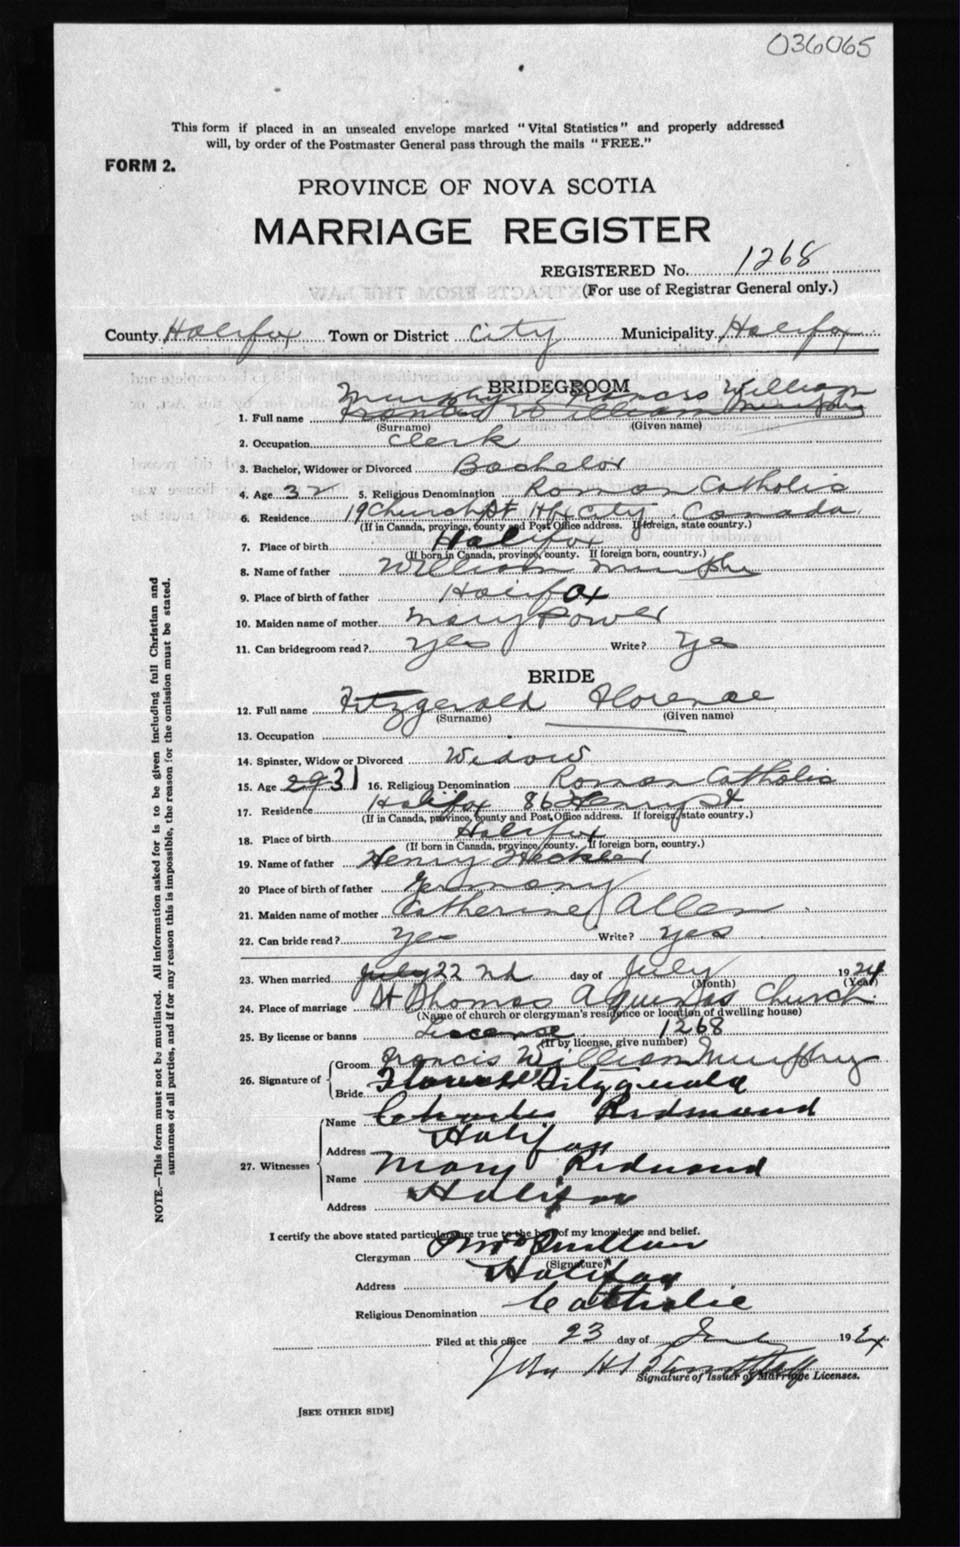 036065
This form if placed in an unsealed envelope marked "Vital Statistics" and properly addressed
will, by order of the Postmaster General pass through the mails "FREE."
FORM 2.
PROVINCE OF NOVA SCOTIA
MARRIAGE REGISTER
REGISTERED No. 1268
(For use of Registrar General only.)
County Halifax Town or District City Municipality Halifax
BRIDEGROOM
Murphy Francis William
1. Full name Francis William Murphy
(Surname) (Given name)
2. Occupation Clerk
3. Bachelor, Widower or Divorced Bachelor
4. Age 32 5. Religious Denomination Roman Catholic
6. Residence 19 Church St Hfx City Canada
(If in Canada, province, county and Post Office address. If foreign, state country.)
7. Place of birth Halifax
(If born in Canada, province, county. If foreign born, country.)
8. Name of father William Murphy
9. Place of birth of father Halifax
10. Maiden name of mother Mary Power
11. Can bridegroom read? Yes Write? Yes
BRIDE
12. Full name Fitzgerald Florence
(Surname) (Given name)
13. Occupation
14. Spinster, Widow or Divorced Widow
15. Age 29 31 16. Religious Denomination Roman Catholic
17. Residence Halifax 86 Henry St
(If in Canada, province, county and Post Office address. If foreign, state country.)
18. Place of birth Halifax
(If born in Canada, province, county. If foreign born, country.)
19. Name of father Henry Heckler
20 Place of birth of father Germany
21. Maiden name of mother Catherine Allen
22. Can bride read? Yes Write? Yes
23. When married July 22nd day of July 1924
(Month) (Year)
24. Place of marriage St Thomas Aquinas Church
(Name of church or clergyman's residence or location of dwelling house)
25. By license or banns License 1268
(If by license, give number)
26. Signature of Groom Francis William Murphy
Bride Florence Fitzgerald
27. Witnesses Name Charles Redmond
Address Halifax
Name Mary Redmond
Address Halifax
I certify the above stated particulars are true to the best of my knowledge and belief.
Clergyman Quillan
(Signature)
Address Halifax
Religious Denomination Catholic
Filed at this office 23 day of 1924
John
Signature of Issuer of Marriage Licenses.
[SEE OTHER SIDE]
NOTE.—This form must not be mutilated. All information asked for is to be given including full Christian and
surnames of all parties, and if for any reason this is impossible, the reason for the omission must be stated.